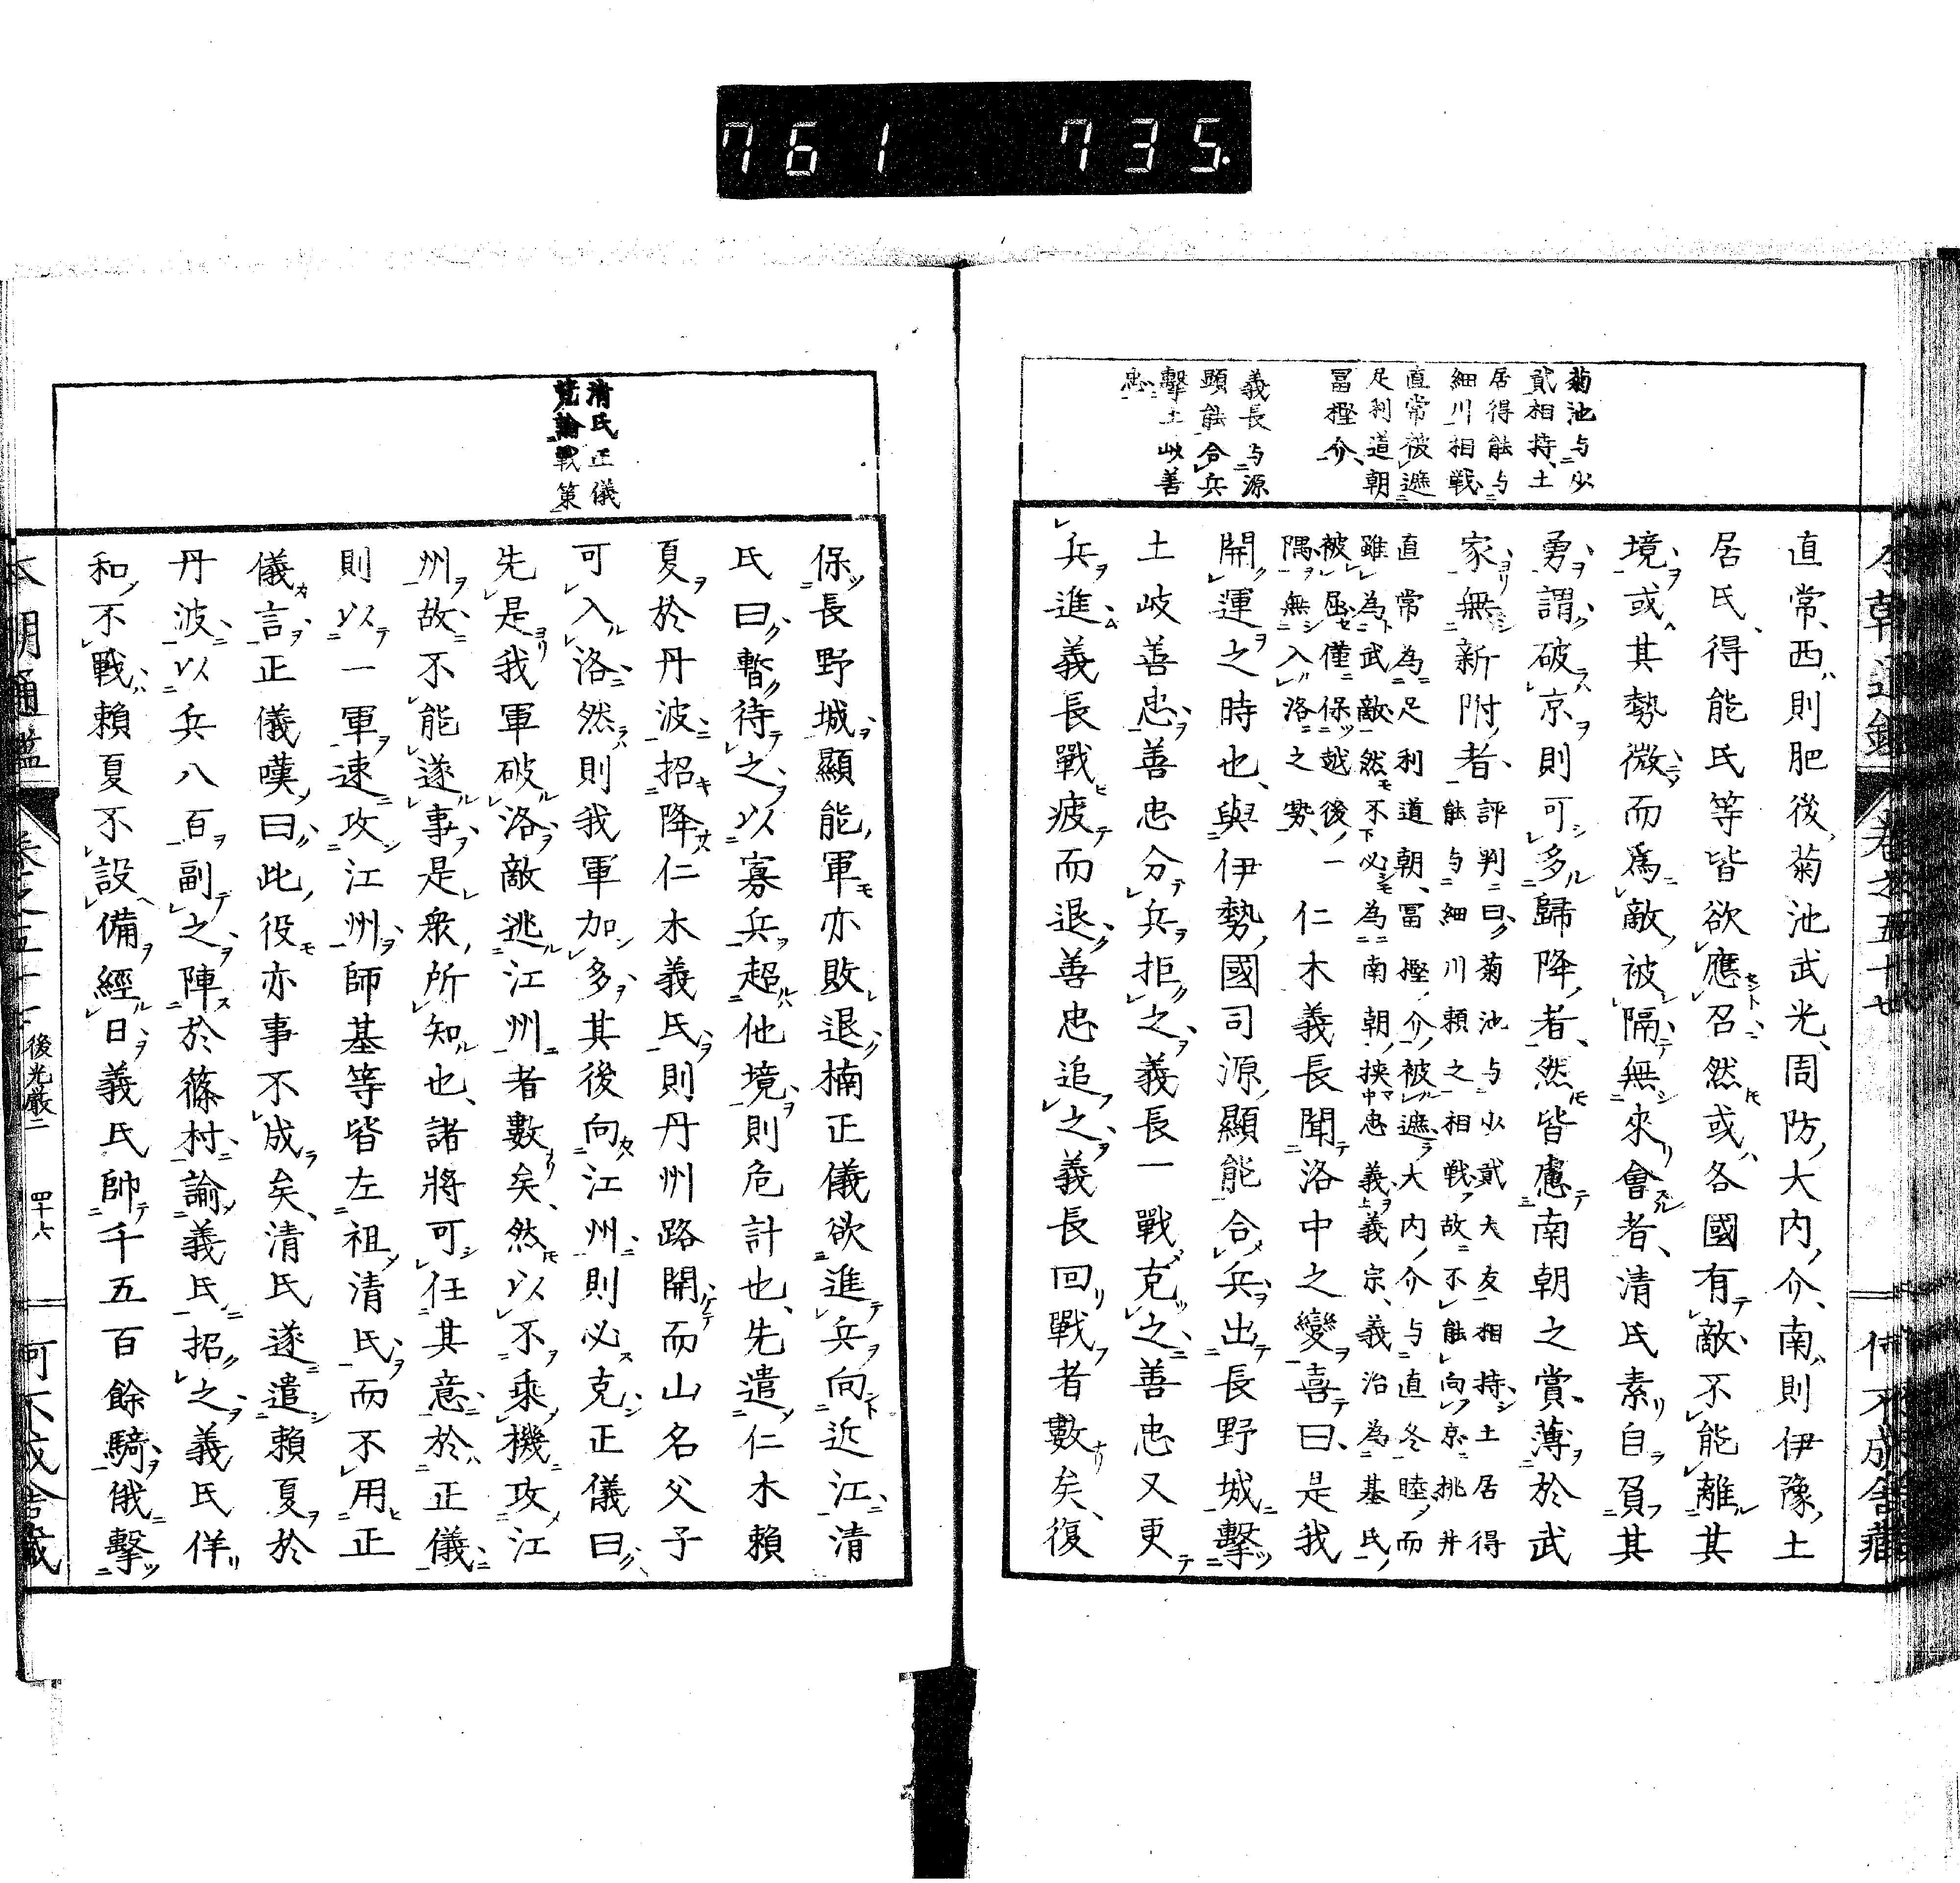 761 735.
菊池与少
貳相持、土
居得能与
細川相戦
直常被遮
足利道朝
冨樫介、
義長与源
顕能合兵
擊土岐善
忠
直常、西則肥後菊池武光、周防大内介、南則伊豫土
居氏、得能氏等皆欲應召然或各國有敵不能離其
境或其勢微而爲敵被隔無來會者、清氏素自負其
勇謂破京則可多歸降者、然皆慮南朝之賞薄於武
家無新附者、評判曰、菊池与少貳大友相持、土居得
能与細川頼之相戦故不能向京、桃井
直常為足利道朝、冨樫介被遮、大内介与直冬睦而
雖為武敵然不必為南朝挟忠義、義宗、義治為基氏
被屈僅保越後一
隅無入洛之勢、
仁木義長聞洛中之變喜曰、是我
開運之時也、與伊勢國司源顯能合兵出長野城擊
土岐善忠善忠分兵拒之義長一戰克之善忠又更
兵進義長戰疲而退善忠追之義長回戰者數矣、復
清氏正儀
覚論戰策
保長野城顯能軍亦敗退楠正儀欲進兵向近江清
氏曰暫待之以寡兵超他境則危計也、先遣仁木賴
夏於丹波招降仁木義氏則丹州路開而山名父子
可入洛然則我軍加多其後向江州則必克正儀曰
先是我軍破洛敵逃江州者數矣、然以不乘機攻江
州故不能遂事是衆所知也、諸將可任其意於正儀
則以一軍速攻江州師基等皆左袒清氏而不用正
儀言正儀嘆曰此役亦事不成矣、清氏遂遣賴夏於
丹波以兵八百副之陣於篠村諭義氏招之義氏佯
和不戰賴夏不設備經日義氏帥千五百餘騎俄擊
本朝通鑑 卷之五十 後光嚴二 四十六 何不成舎藏